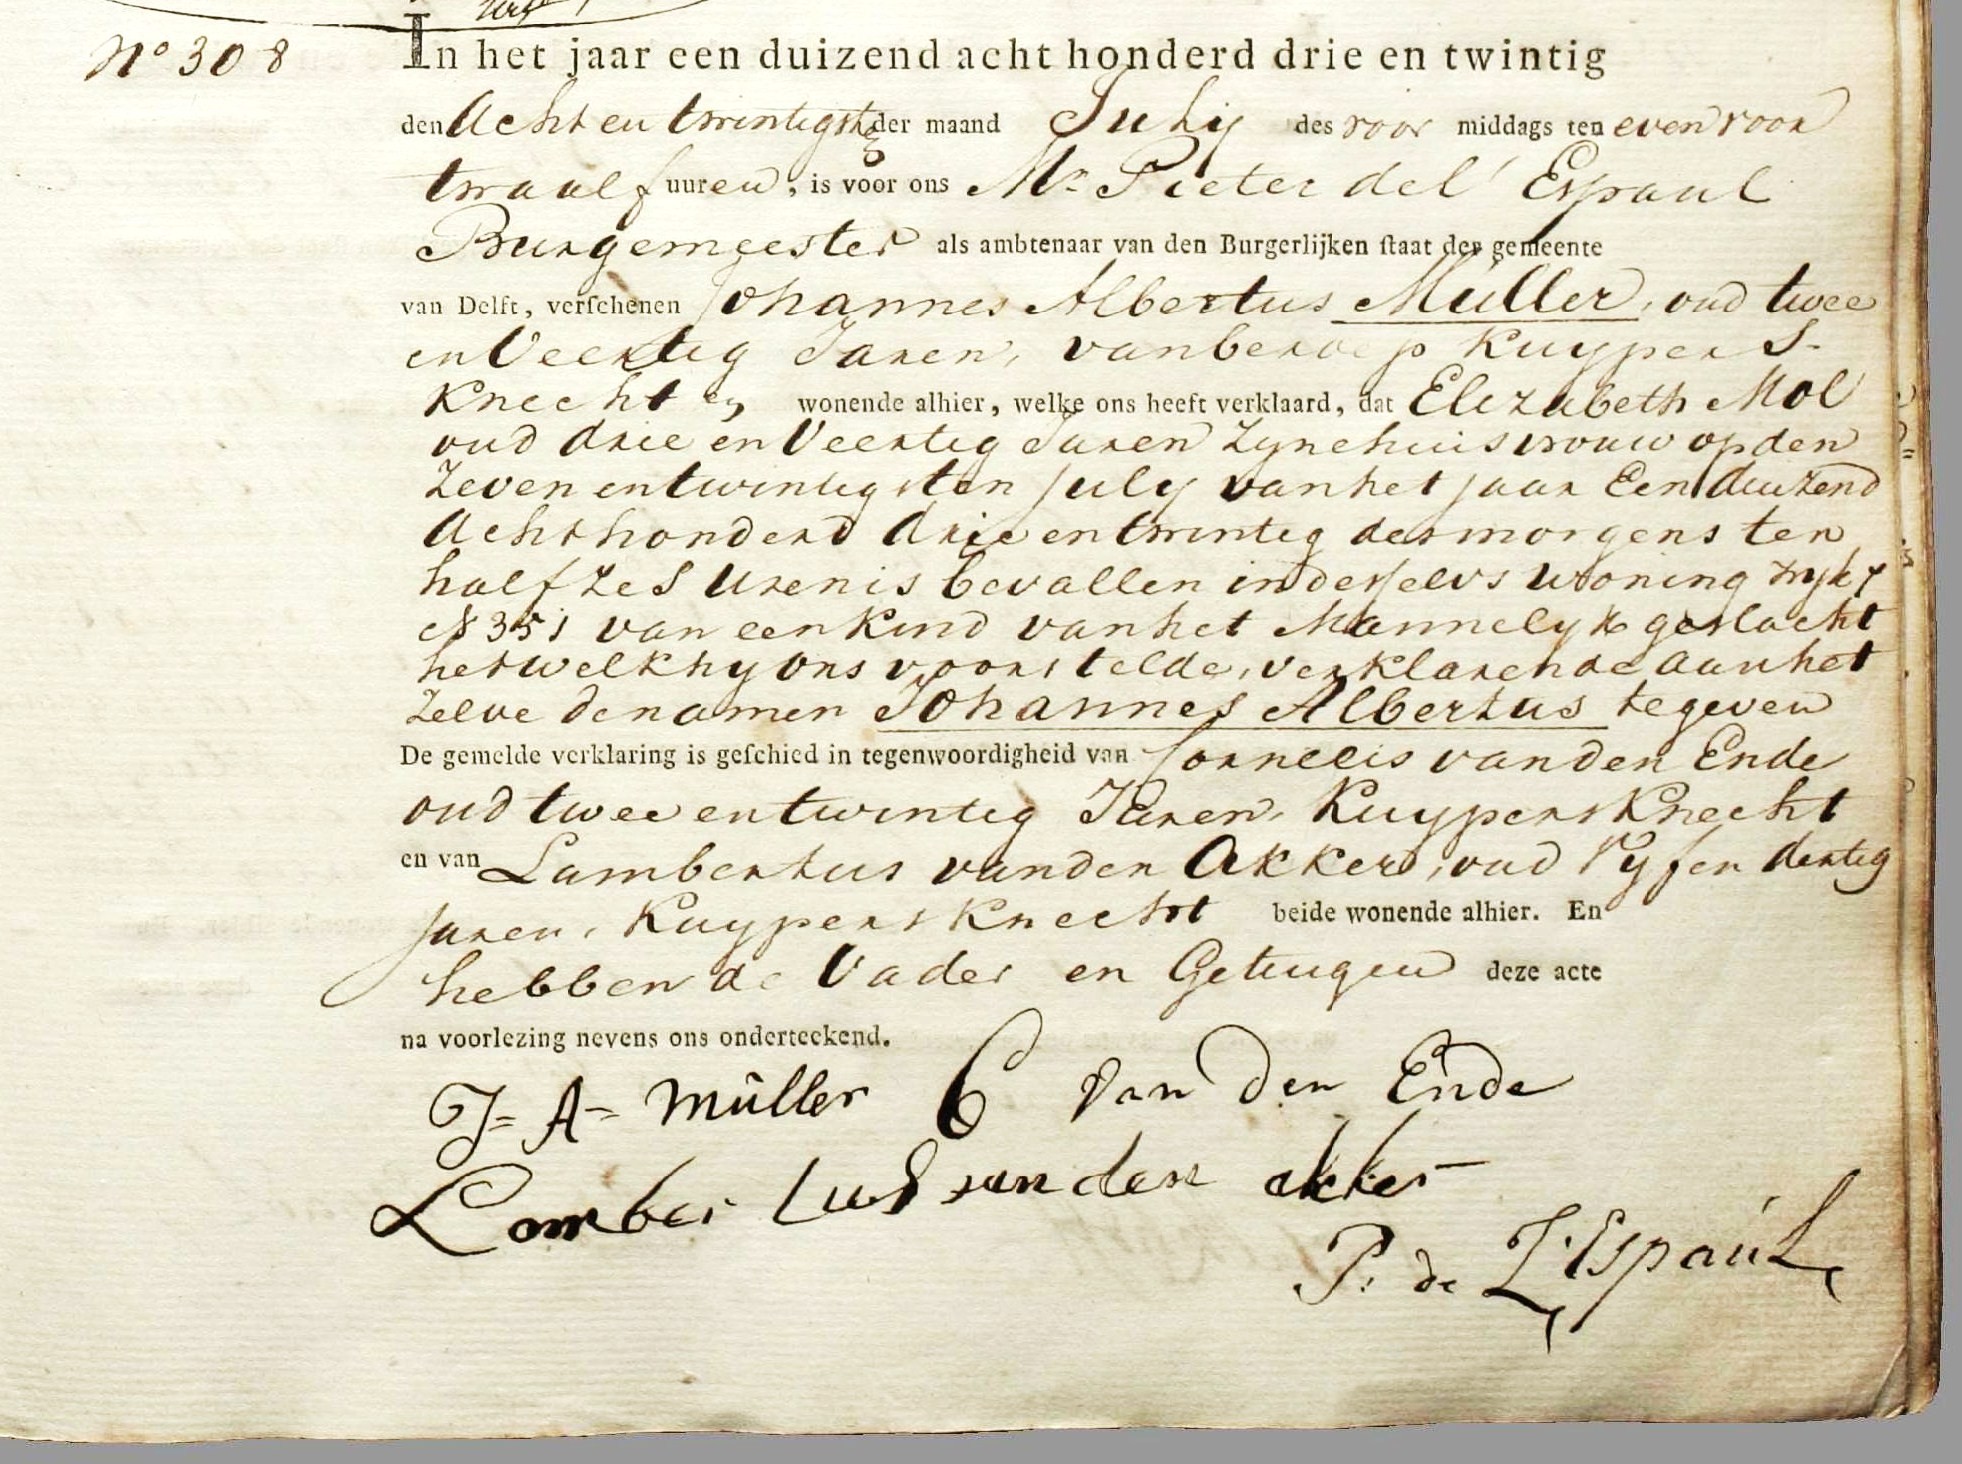 N° 308
In het jaar een duizend acht honderd drie en twintig
den Acht en twintigste der maand July des voor middags ten even voor
twaalf uuren, is voor ons Mr Pieter del' Espaul
Burgemeester als ambtenaar van den Burgerlijken ſtaat der gemeente
van Delft, verſchenen Johannes Albertus Müller, oud twee
en Veertig Jaren, van beroep Kuypers-
Knecht en wonende alhier, welke ons heeft verklaard, dat Elizabeth Mol
oud drie en Veertig Jaren Zyne huisvrouw op den
Zeven en twintigsten July van het jaar Een duizend
Acht honderd drie en twintig des morgens ten
half zes Uren is bevallen in deszelvs woning wyk 7
N 351 van een Kind van het Mannelyk geslacht
het welk hy ons voorstelde, verklarende aan het
Zelve de namen Johannes Albertus te geven
De gemelde verklaring is geſchied in tegenwoordigheid van Cornelis van den Ende
oud twee en twintig Jaren, Kuypers Knecht
en van Lambertus van den Akker, oud Vyf en dertig
Jaren, Kuypers Knecht beide wonende alhier. En
hebben de Vader en Getuigen deze acte
na voorlezing nevens ons onderteekend.
J= A= Müller C van den Ende
Lambertus van den akker
P: de L'Espaul